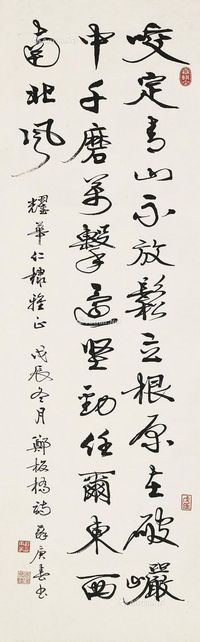 咬定青山不放鬆立根原在破巖
中千磨萬擊還堅勁任爾東西
南北風
耀華仁棣雅正 戊辰冬月 鄭板橋詩 庚春书